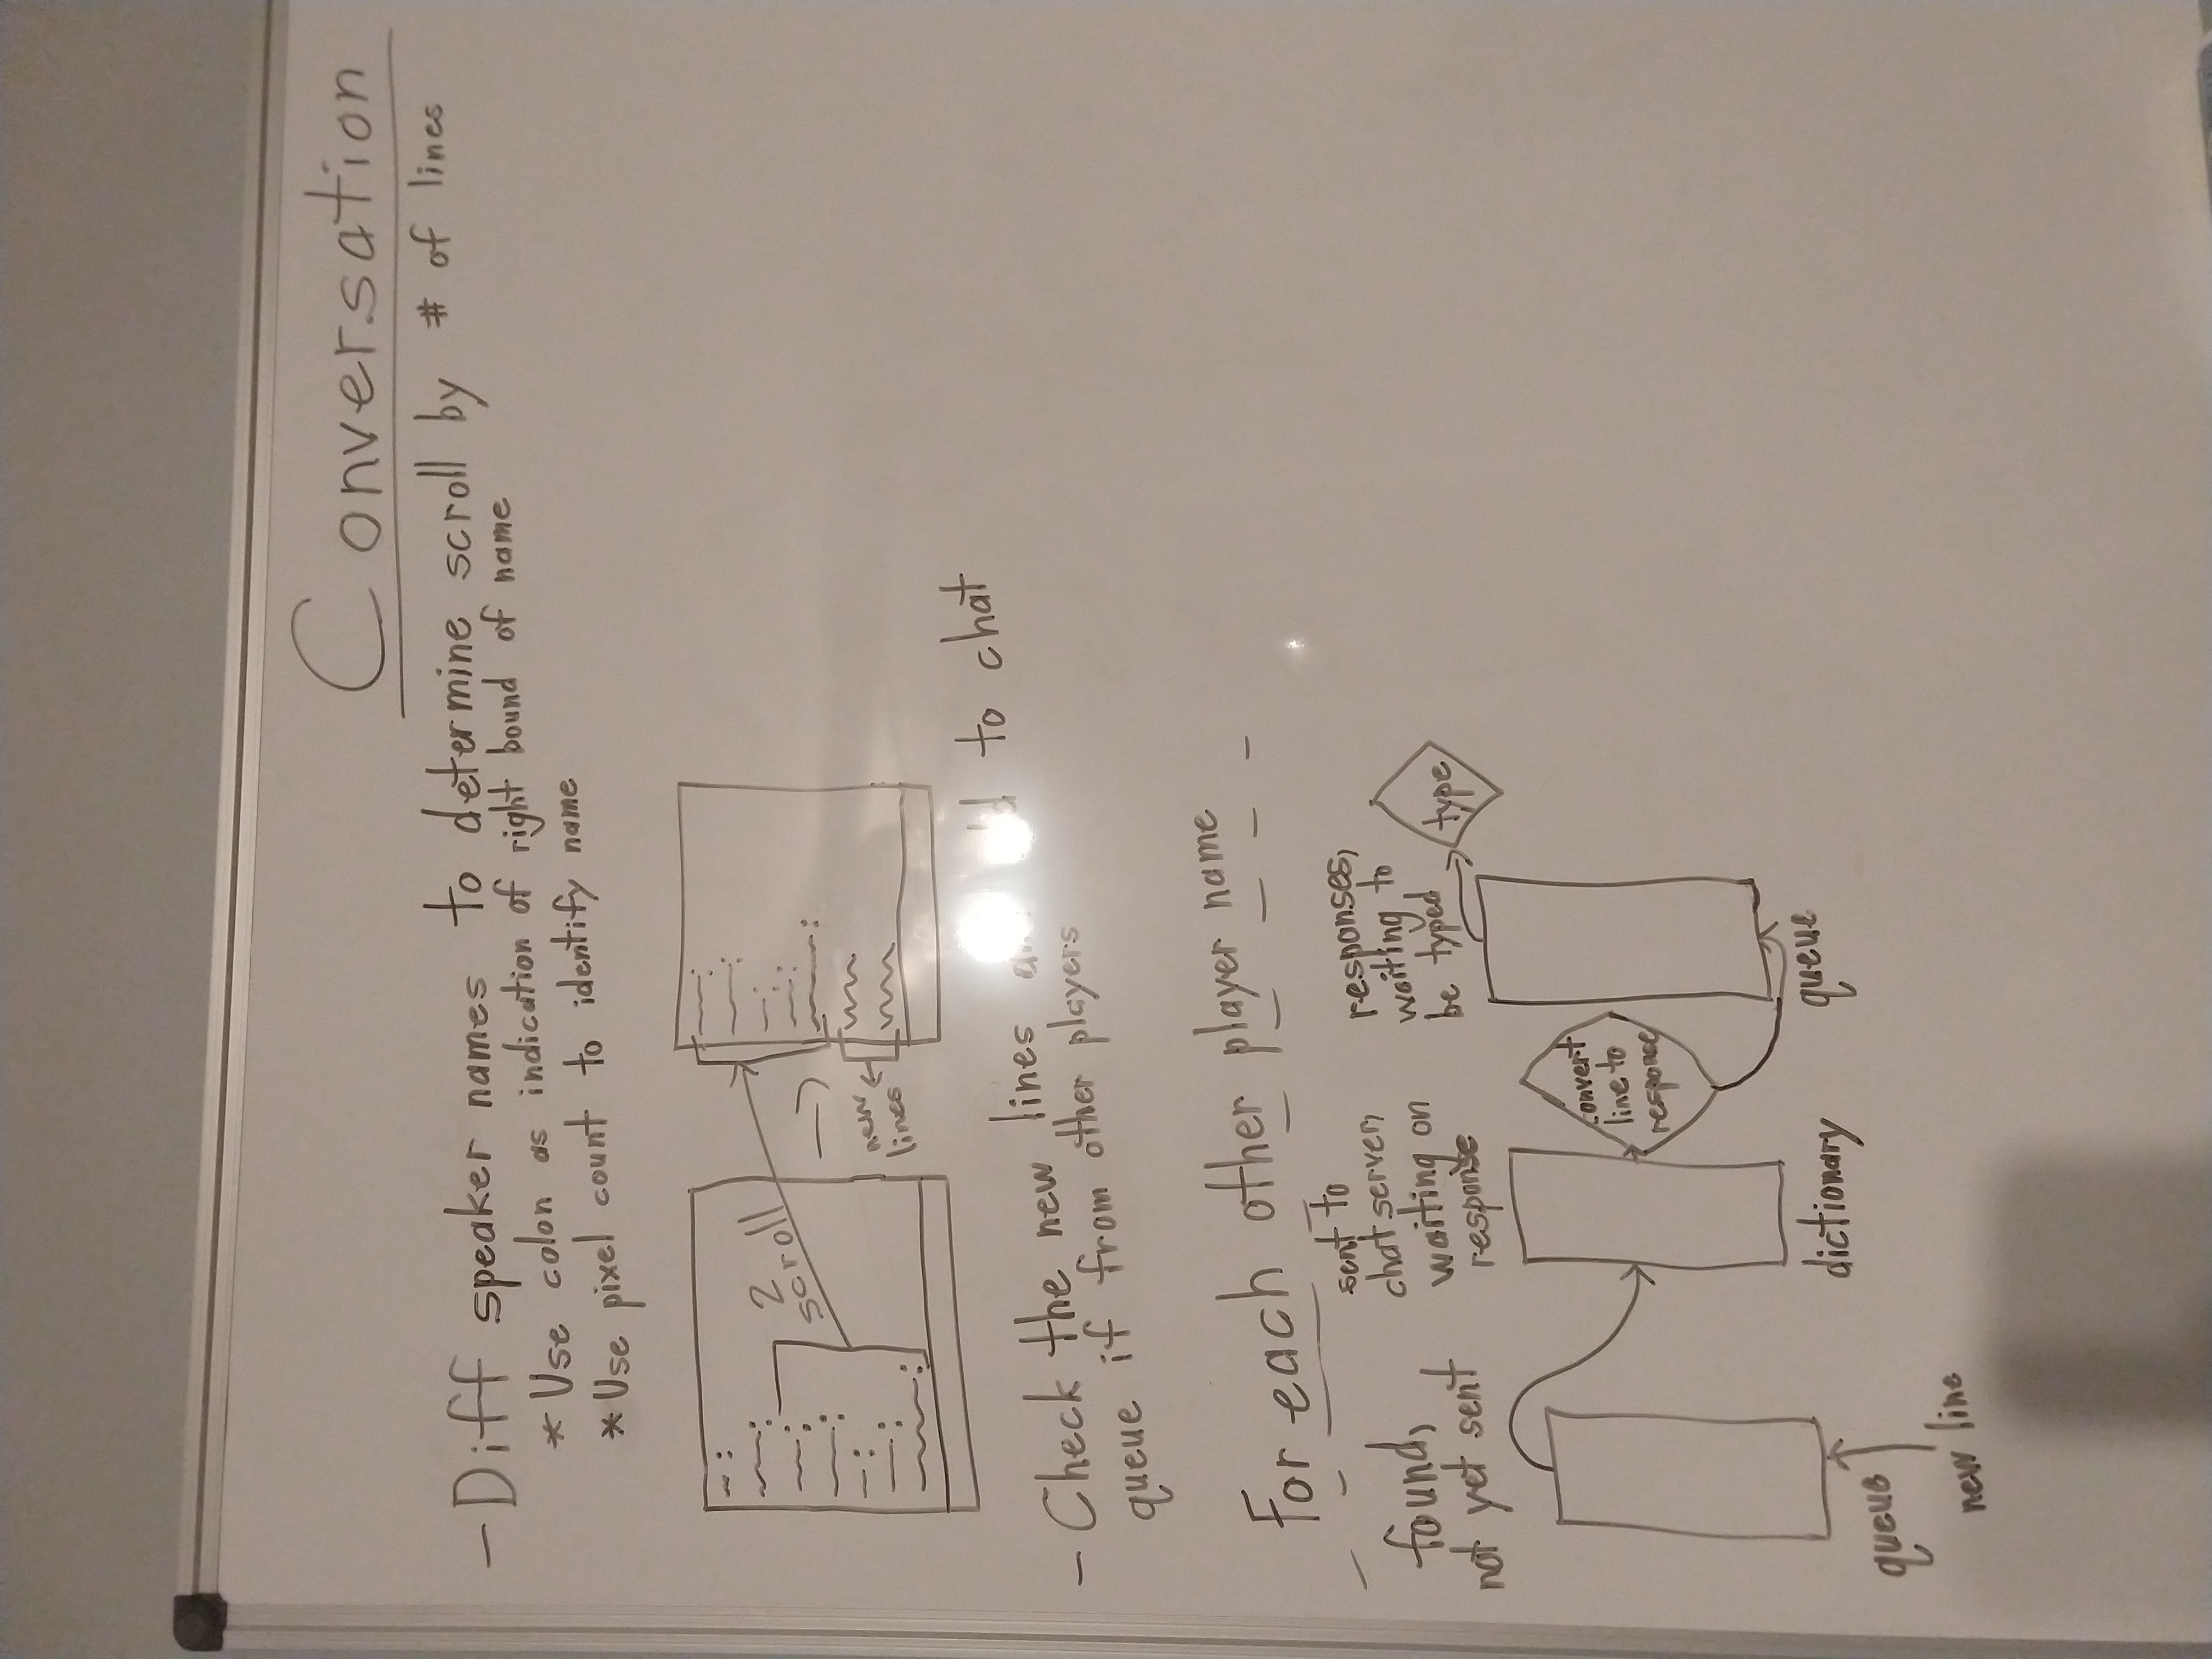 Conversation
- Diff speaker names to determine scroll by # of lines
* Use colon as indication of right bound of name
* Use pixel count to identify name
2
scroll
new
lines
- Check the new lines to chat
queue if from other players
For each other player name
found,
not yet sent
sent to
chat server,
waiting on
response
responses,
waiting to
be typed
type
convert
line to
response
queue
dictionary
queue
new line